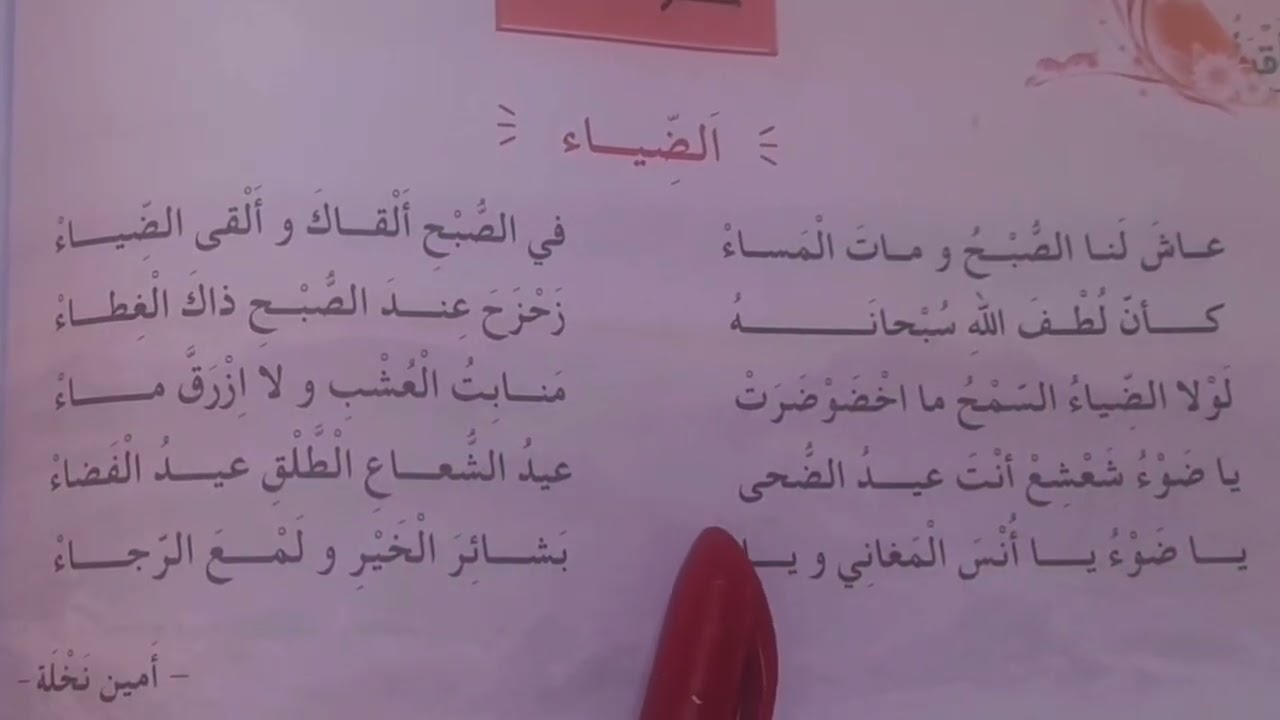 اَلضِّيـــاء
عـاشَ لَنـا الصُّبْـحُ و مـاتَ الْمَسـاءْ في الصُّبْحِ أَلْقـاكَ و أَلْقى الضِّيـــاءْ
كـــأنّ لُطْـفَ اللهِ سُبْحانَـــــــهُ زَحْزَحَ عِنـدَ الصُّبْـحِ ذاكَ الْغِطـاءْ
لَوْلا الضِّياءُ السَمْحُ ما اخْضَوْضَرَتْ مَنـابِتُ الْعُشْبِ و لا اِزْرَقَّ مـــاءْ
يا ضَوْءُ شَعْشِعْ أنْتَ عيـدُ الضُّحى عيدُ الشُّعـاعِ الْطَّلْقِ عيـدُ الْفَضاءْ
يـــا ضَوْءُ يـــا أُنْسَ الْمَغانِي و يـــا بَشـــائِرَ الْخَيْرِ و لَمْــعَ الرّجـــاءْ
– أَمين نَخْلَة-